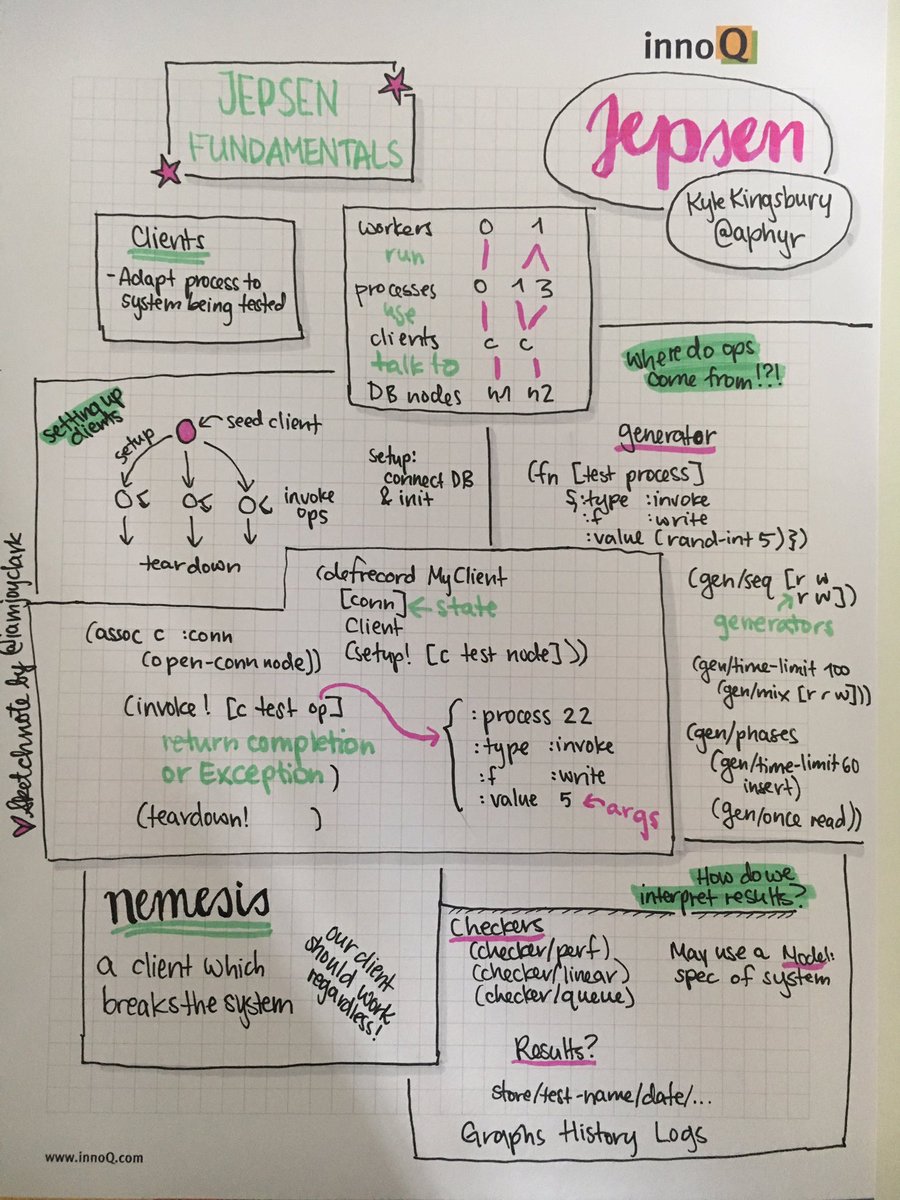 innoQ
JEPSEN
FUNDAMENTALS
Jepsen
Kyle Kingsbury
@aphyr
Clients
- Adapt process to
system being tested
workers 0 1
run
processes 0 1 3
use
clients c c
talk to
DB nodes n1 n2
where do ops
come from!?!
setting up
clients
seed client
setup
invoke
ops
teardown
setup:
connect DB
& init
generator
(fn [test process]
{:type :invoke
:f :write
:value (rand-int 5)})
(gen/seq [r w
r w])
generators
(gen/time-limit 100
(gen/mix [r r w]))
(gen/phases
(gen/time-limit 60
insert)
(gen/once read))
(defrecord MyClient
[conn] ← state
Client
(setup! [c test node]))
(assoc c :conn
(open-conn node))
(invoke! [c test op]
return completion
or Exception )
(teardown! )
{ :process 22
:type :invoke
:f :write
:value 5 ← args
♥ Sketchnote by @iamjayclark
nemesis
a client which
breaks the system
our client
should work
regardless!
How do we
interpret results?
Checkers
(checker/perf)
(checker/linear)
(checker/queue)
May use a Model:
spec of system
Results?
store/test-name/date/...
Graphs History Logs
www.innoQ.com